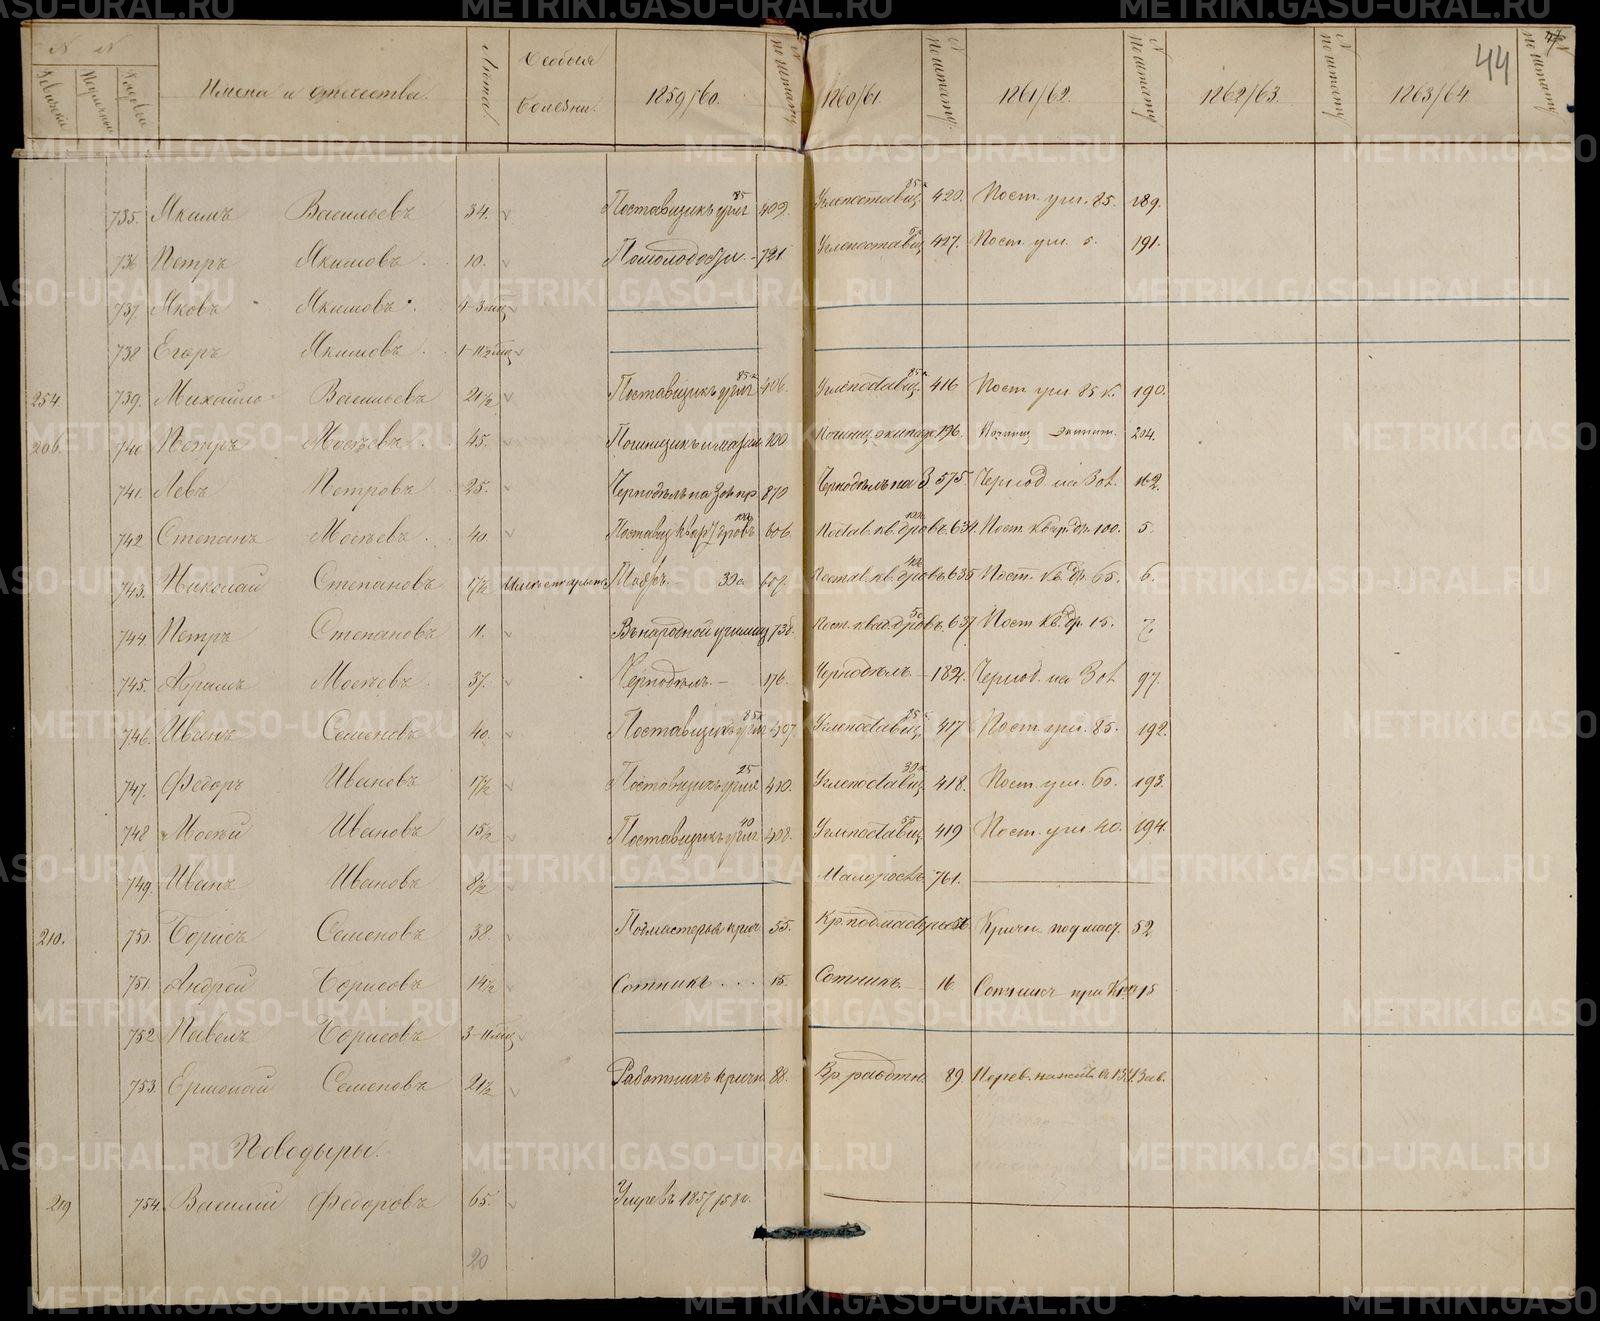 N N Имена и отечества. Лета Особыя болезни. 1859/60. N по штату 1860/61 N по штату. 1861/62. N по штату 1862/63. N по штату 1863/64. N по штату
44
735. Якимъ Васильевъ 34. Поставщикъ угля 85 409. Углепоставщ. 85к 420. Пост. угл. 85. 189.
736 Петръ Якимовъ 10. 721 Углепоставщ 427. Пост. угл. 5. 191.
737. Яковъ Якимовъ. 4-3 мец
738 Егоръ Якимовъ. 1-11½ мец
254 739. Михайло Васильевъ 21½ Поставщикъ угля 85к 406. Углепоставщ. 85к 416 Пост угл 85 к. 190.
206. 740 Петръ Мосѣевъ. 45. 100. Починщ. экипаж 196. Починщ экипаж. 204.
741. Левъ Петровъ 25. Чернодѣлъ на Зов пр. 870 Чернодѣлъ на З 575. Чернод на Зов. 162.
742 Степанъ Мосѣевъ. 40. Поставщ квар дровъ 100 606. Постав. кв. дровъ 100к 634. Пост. квар. др. 100. 5.
743. Николай Степановъ 17½ 30 607. Постав. кв. дровъ 635 Пост. кв. др. 65. 6.
744 Петръ Степановъ 11. Въ народной училищ 738. Пост. квад. дровъ 50 637 Пост кв. др. 15. 7.
745. Абрамъ Мосѣевъ. 37. Чернодѣлъ. — 176. Чернодѣлъ — 182. Чернод. на Зов 97.
746. Иванъ Семеновъ 40. Поставщикъ угля 85к 407. Углепоставщ. 85к 417 Пост. угл. 85. 192.
747. Федоръ Ивановъ 17½ Поставщикъ угля 25 410. Углепоставщ 30к 418. Пост. угл. 60. 193.
748 Мосѣй Ивановъ 15½ Поставщикъ угля 40 408. Углепоставщ 55 419 Пост. угл. 40. 194.
749. Иванъ Ивановъ 8½ Малоростъ 761.
210. 750. Борисъ Семеновъ 38. Подмастерья крич 55. Кр. подмастерья 56 Кричн. подмаст. 52
751. Андрей Борисовъ 14½ Сотникъ . . . 15. Сотникъ — 16 15
752 Павелъ Борисовъ 3-11 мец
753. Ермолай Семеновъ 21½ Работникъ кричн. 88. Кр. работн. 89
Поводыры.
219 754. Василий Федоровъ 65. Умеръ 1857/58 г.
20
METRIKI.GASO-URAL.RU